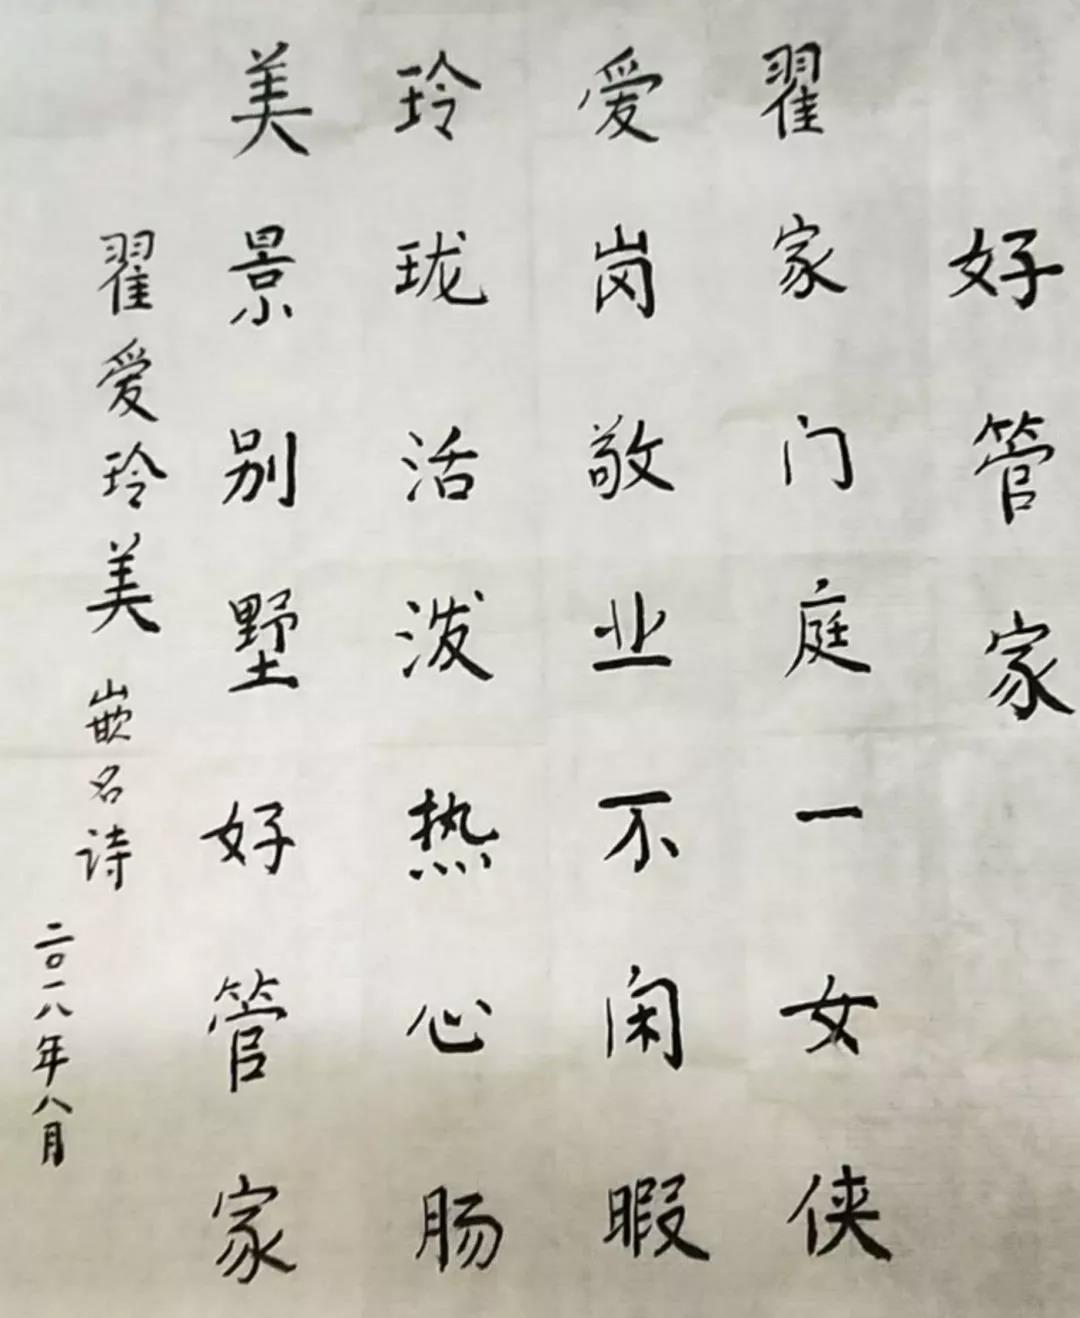 好管家
翟家门庭一女侠
爱岗敬业不闲暇
玲珑活泼热心肠
美景别墅好管家
翟爱玲美嵌名诗
二〇一八年八月